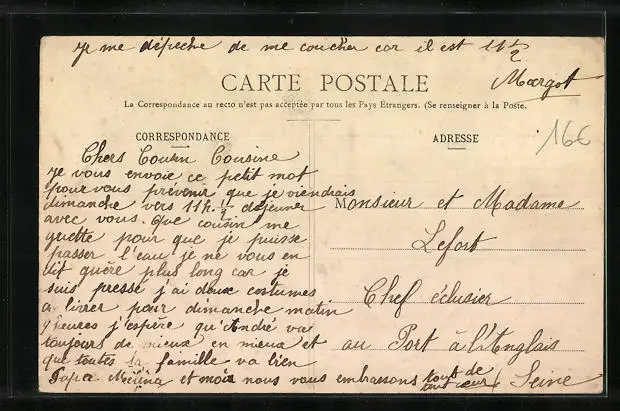 Je me dépeche de me coucher car il est 11h ½
Margot
CARTE POSTALE
La Correspondance au recto n'est pas acceptée par tous les Pays Étrangers. (Se renseigner à la Poste.
CORRESPONDANCE
Chers Cousin Cousine
Je vous envoie ce petit mot
pour vous prévenir que je viendrais
dimanche vers 11h. ½ dejeuner
avec vous. Que cousin me
guette pour que je puisse
passer l'eau je ne vous en
dit guère plus long car je
suis pressé j'ai deux costumes
a livrer pour dimanche matin
9 heures j'espère qu'André va
toujours de mieux en mieux et
que toutes la famille va bien
Papa et moi nous vous embrassons tout de
tout cœur
ADRESSE
16€
Monsieur et Madame
Lefort
Chef éclusier
au Port à l'Anglais
Seine